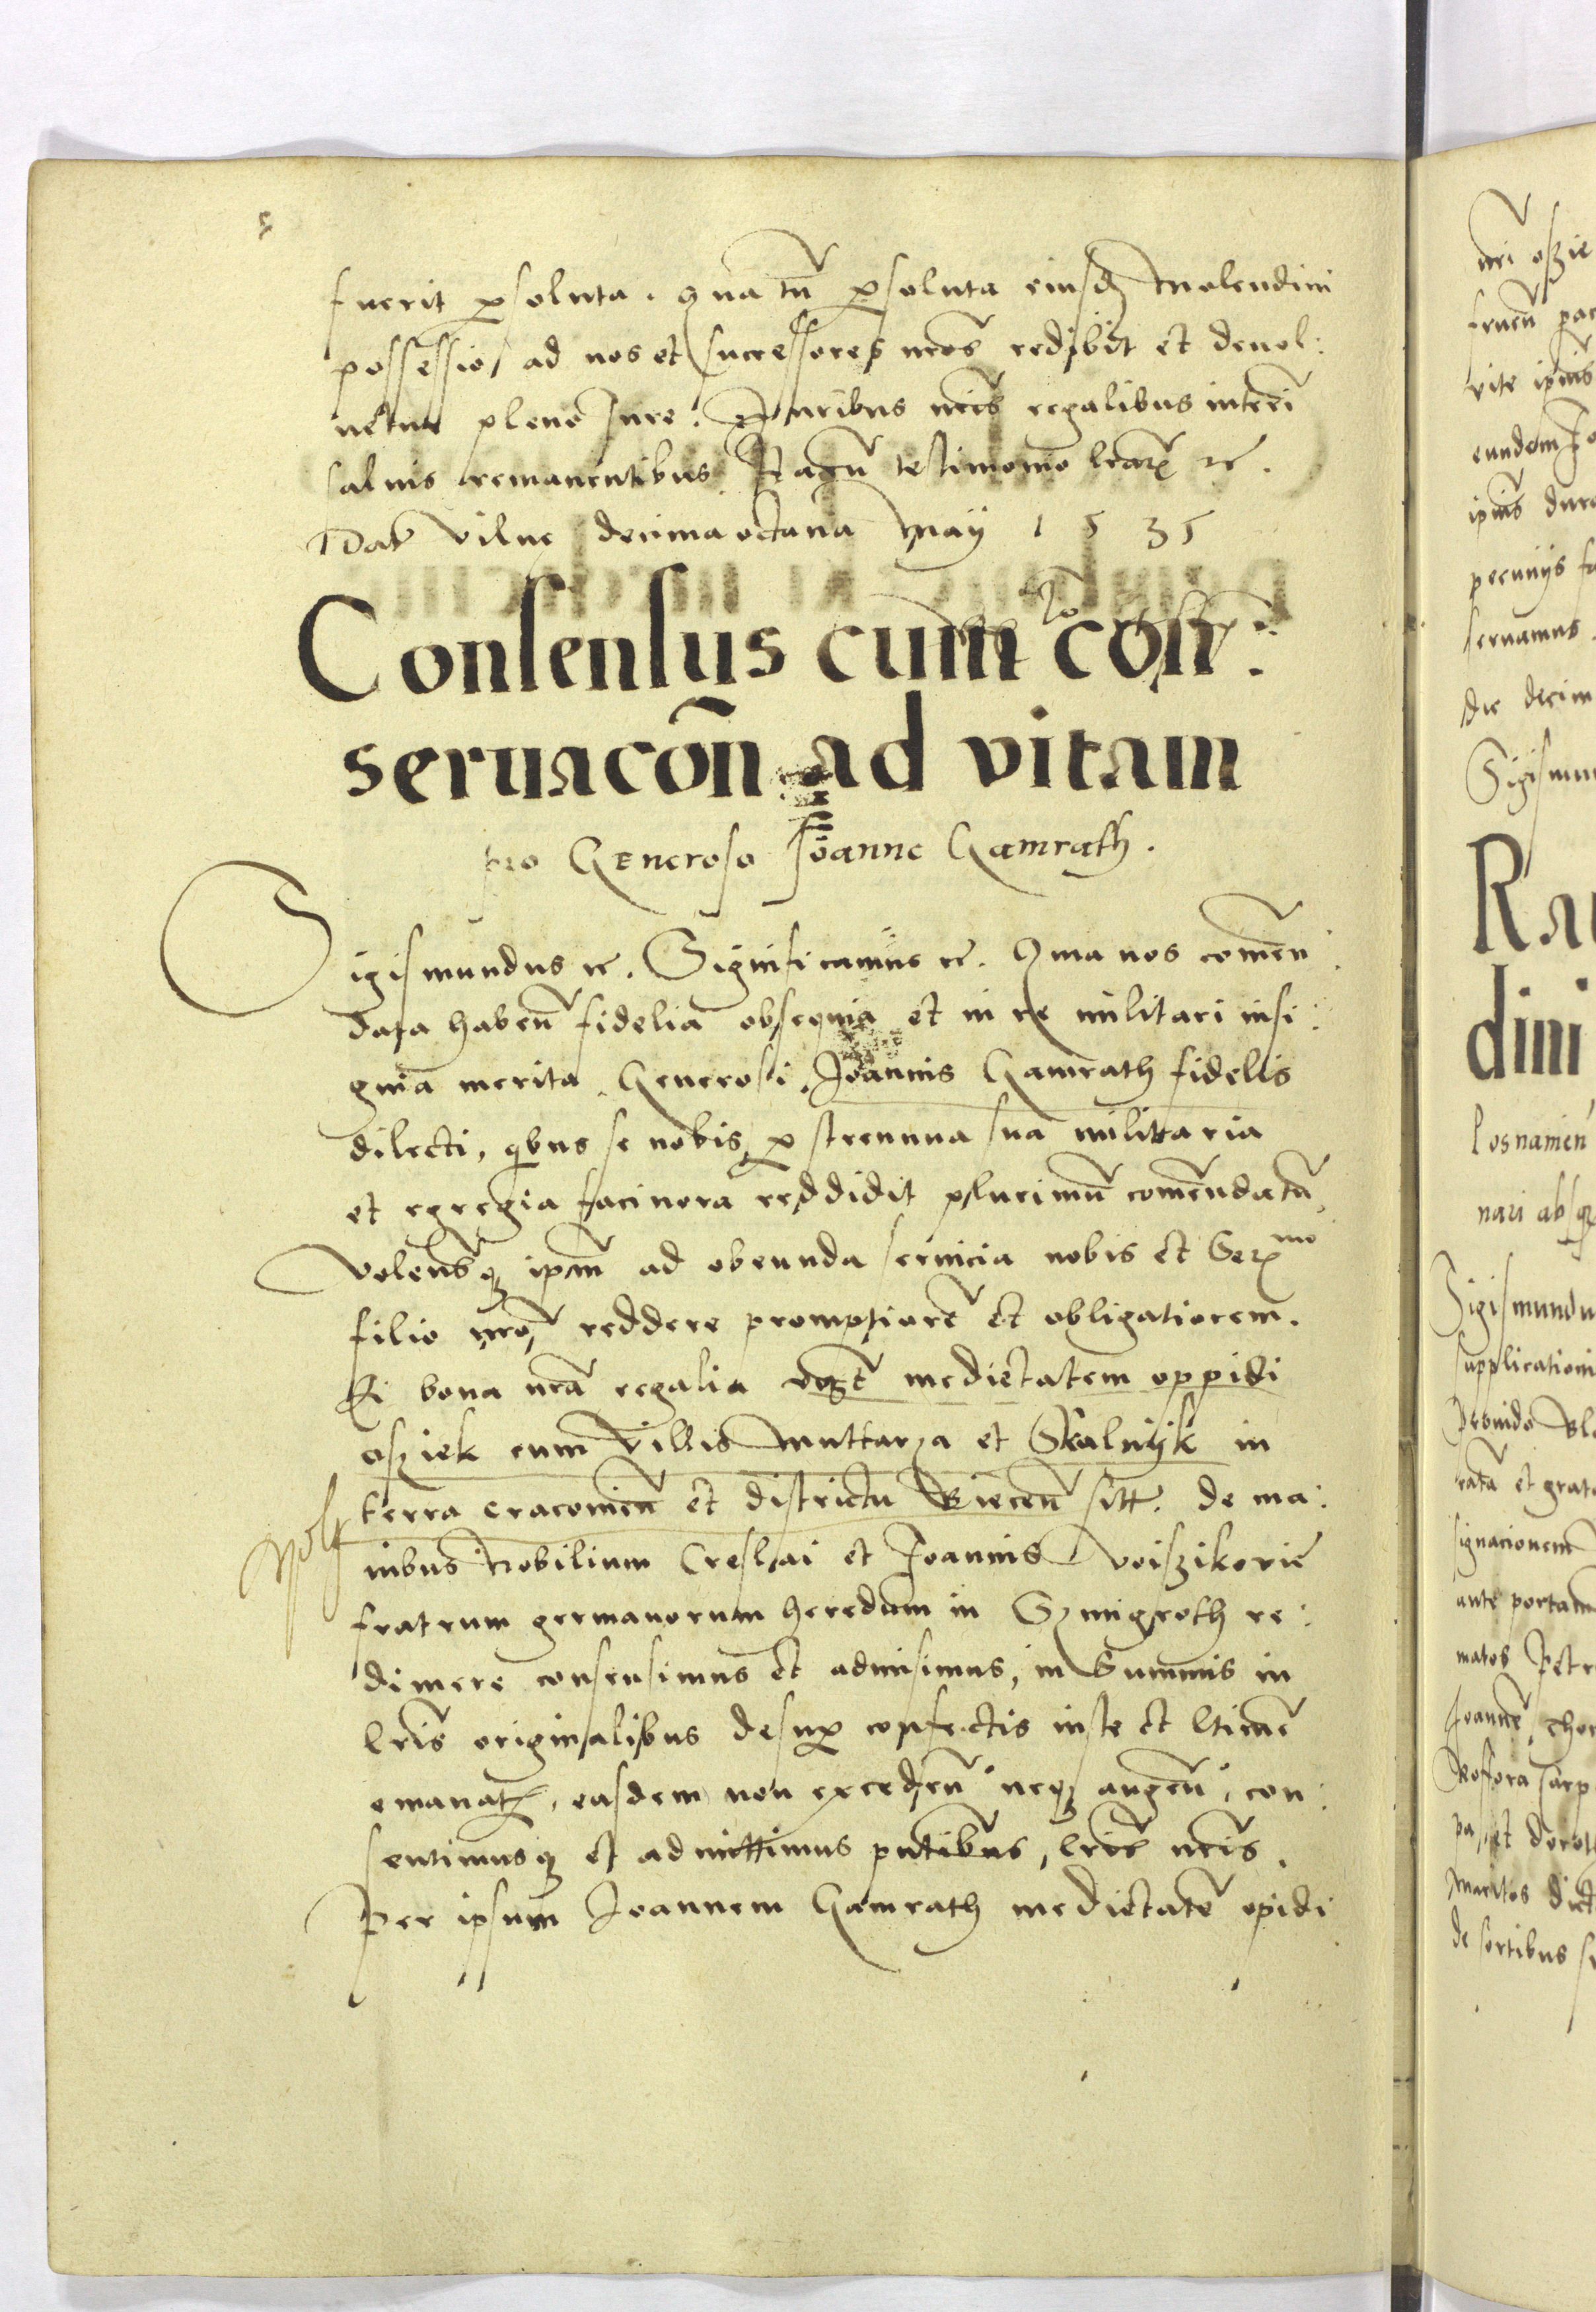 fuerit persoluta. qua tn̄ persoluta eiusdē Molendini
possessio, ad nos et successores nr̄os redibit et deuol:
uetur pleno Jure. Juribus nr̄is regalibus interī
saluis remanentibus. Harū testimonio lrarū etc.
Dat Vilne decimaoctaua May 1535
Consensus cum con:
seruacōn ad vitam
pro Generoso Joanne Gamrath.
Sigismundus etc. Significamus etc. Quia nos comen
data haben̄ fidelia obsequia et in re militari insi:
gnia merita Generosi Joannis Gamrath fidelis
dilecti, qbus se nobis per strennua sua militaria
et egregia facinora reddidit plurimū comēndatū,
Volensq; ipm̄ ad obeunda seruicia nobis et Ser(mo)
filio nr̄o, reddere promptiorē et obligatiorem.
Ei bona nr̄a regalia vz̄t medietatem oppidi
osziek cum Villis Muttarza et Skalnyk in
terra Cracouien̄ et districtu Biecen̄ sitt. de ma:
nibus Nobilium Creslai et Joannis Voiszikovie
fratrum germanorum heredum in Szmigroth re:
dimere consensimus et admisimus, in Summis in
lr̄is originalibus desuper confectis iuste et ltime
emanatz, easdem non exceden̄ neq; augen̄, con:
sentimusq; et admittimus pn̄tibus, lr̄is nr̄is.
Per ipsum Joannem Gamrath medietatē opidi
nr̄i oszie
vite ipsius
eundem Jo
ipsius dura
pecunijs
seruamus.
die decim
Sigismun
Ra
dini
losnamen
nari absq;
Sigismundu
supplicationi
signacionem
ante portam
matos Petr
de sortibus